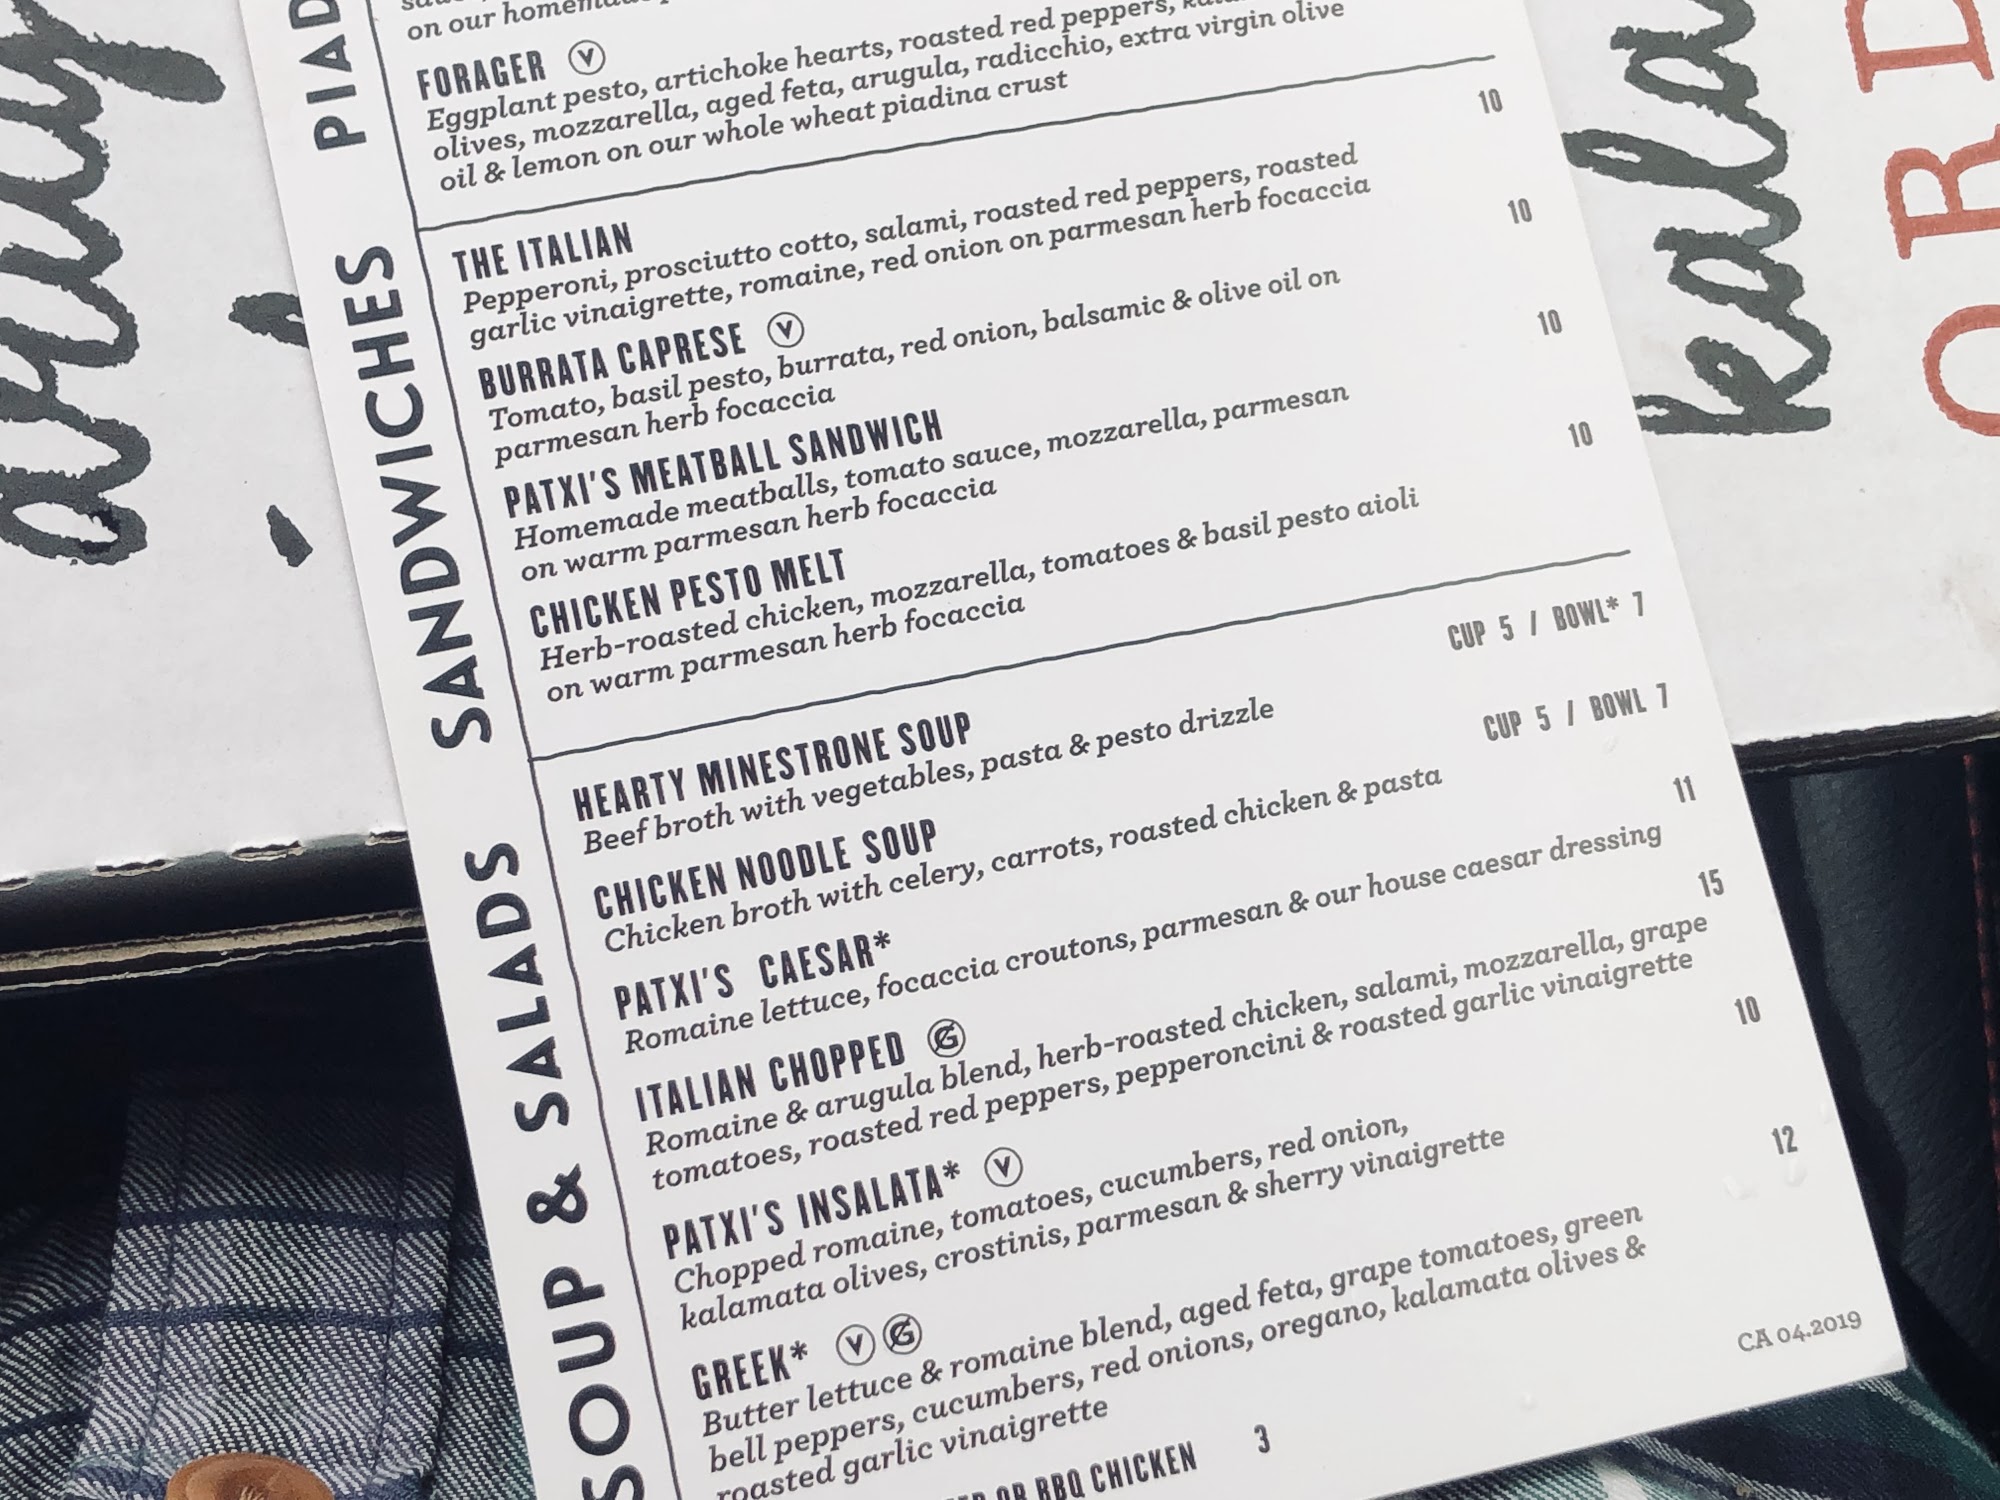 PIAD
on our homemade
FORAGER V
Eggplant pesto, artichoke hearts, roasted red peppers,
olives, mozzarella, aged feta, arugula, radicchio, extra virgin olive
oil & lemon on our whole wheat piadina crust
SANDWICHES
THE ITALIAN 10
Pepperoni, prosciutto cotto, salami, roasted red peppers, roasted
garlic vinaigrette, romaine, red onion on parmesan herb focaccia
BURRATA CAPRESE V 10
Tomato, basil pesto, burrata, red onion, balsamic & olive oil on
parmesan herb focaccia
PATXI'S MEATBALL SANDWICH 10
Homemade meatballs, tomato sauce, mozzarella, parmesan
on warm parmesan herb focaccia
CHICKEN PESTO MELT 10
Herb-roasted chicken, mozzarella, tomatoes & basil pesto aioli
on warm parmesan herb focaccia
SOUP & SALADS
HEARTY MINESTRONE SOUP CUP 5 / BOWL* 7
Beef broth with vegetables, pasta & pesto drizzle
CHICKEN NOODLE SOUP CUP 5 / BOWL 7
Chicken broth with celery, carrots, roasted chicken & pasta
PATXI'S CAESAR* 11
Romaine lettuce, focaccia croutons, parmesan & our house caesar dressing
ITALIAN CHOPPED G 15
Romaine & arugula blend, herb-roasted chicken, salami, mozzarella, grape
tomatoes, roasted red peppers, pepperoncini & roasted garlic vinaigrette
PATXI'S INSALATA* V 10
Chopped romaine, tomatoes, cucumbers, red onion,
kalamata olives, crostinis, parmesan & sherry vinaigrette
GREEK* V G 12
Butter lettuce & romaine blend, aged feta, grape tomatoes, green
bell peppers, cucumbers, red onions, oregano, kalamata olives &
roasted garlic vinaigrette
OR BBQ CHICKEN 3
CA 04.2019